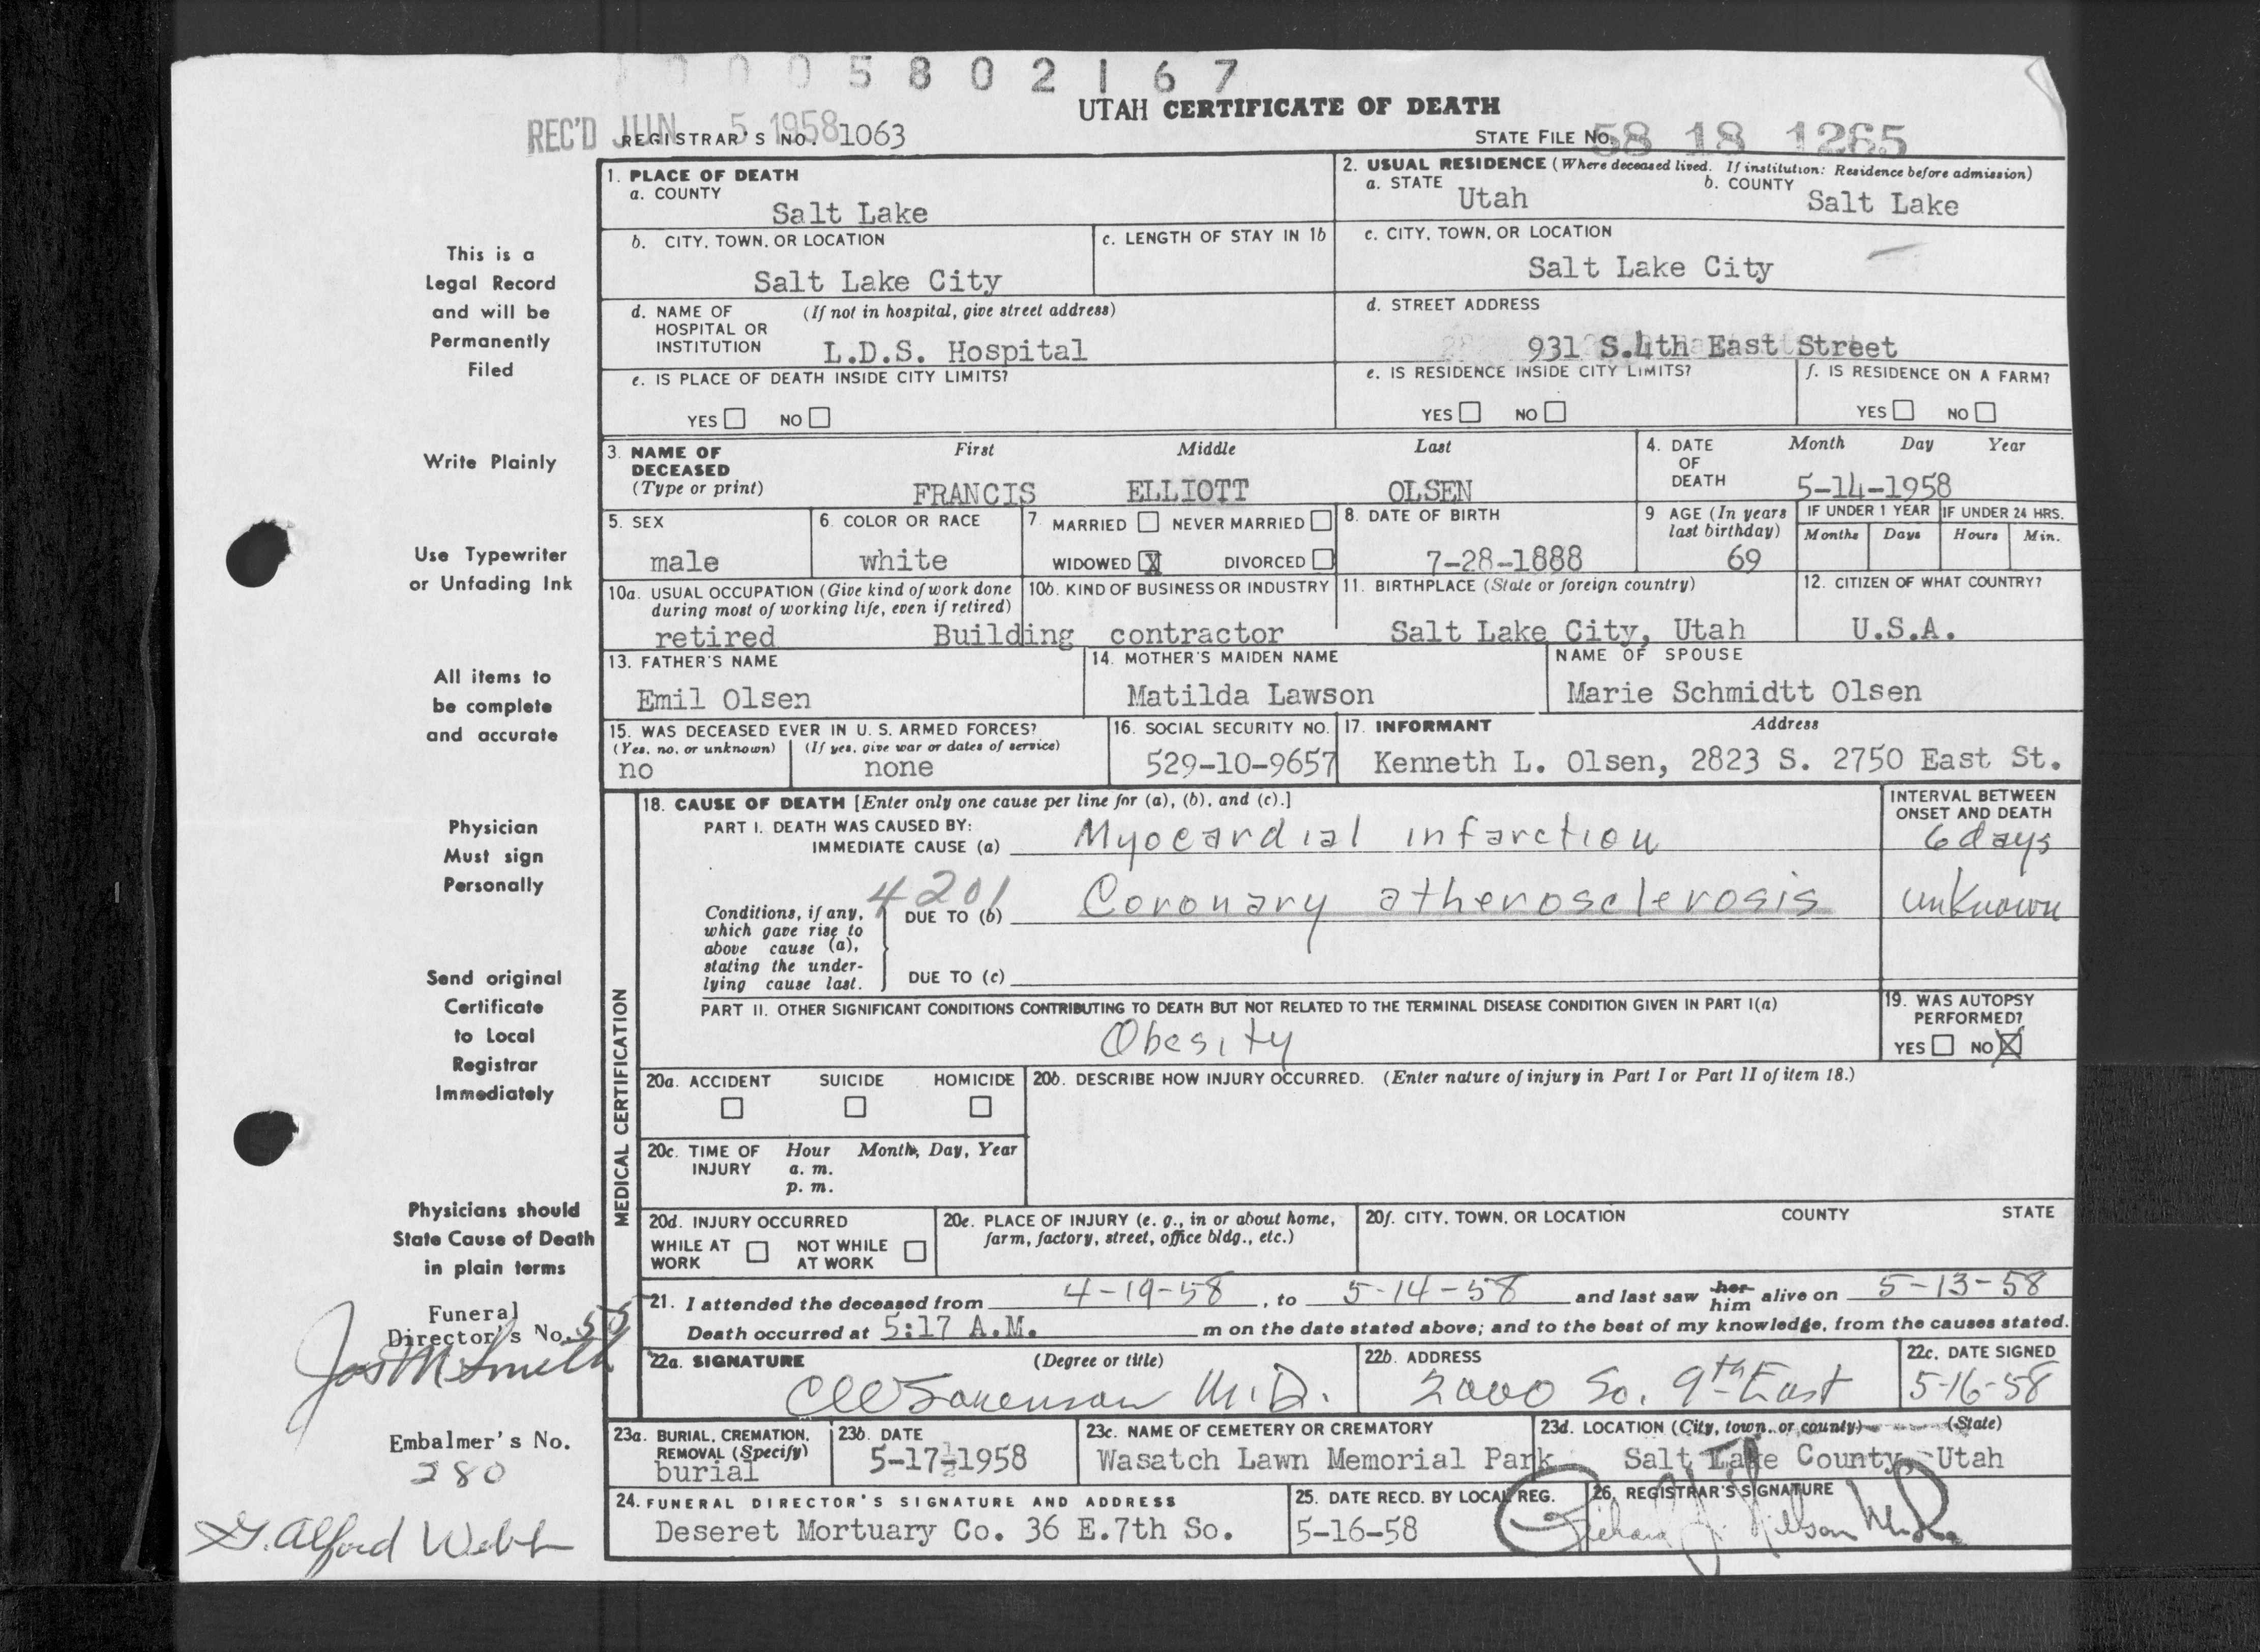 0005802167
UTAH CERTIFICATE OF DEATH
REC'D JUN 5 1958
REGISTRAR'S NO. 1063
STATE FILE NO. 58 18 1265
1. PLACE OF DEATH
a. COUNTY
Salt Lake
2. USUAL RESIDENCE (Where deceased lived. If institution: Residence before admission)
a. STATE Utah b. COUNTY Salt Lake
b. CITY, TOWN, OR LOCATION
Salt Lake City
c. LENGTH OF STAY IN 1b
c. CITY, TOWN, OR LOCATION
Salt Lake City
d. NAME OF HOSPITAL OR INSTITUTION (If not in hospital, give street address)
L.D.S. Hospital
d. STREET ADDRESS
931 S.4th East Street
e. IS PLACE OF DEATH INSIDE CITY LIMITS?
YES NO
e. IS RESIDENCE INSIDE CITY LIMITS?
YES NO
f. IS RESIDENCE ON A FARM?
YES NO
3. NAME OF DECEASED (Type or print)
First Middle Last
FRANCIS ELLIOTT OLSEN
4. DATE OF DEATH Month Day Year
5-14-1958
5. SEX
male
6. COLOR OR RACE
white
7. MARRIED NEVER MARRIED
WIDOWED X DIVORCED
8. DATE OF BIRTH
7-28-1888
9 AGE (In years last birthday)
69
IF UNDER 1 YEAR
Months Days
IF UNDER 24 HRS.
Hours Min.
10a. USUAL OCCUPATION (Give kind of work done during most of working life, even if retired)
10b. KIND OF BUSINESS OR INDUSTRY
retired Building contractor
11. BIRTHPLACE (State or foreign country)
Salt Lake City, Utah
12. CITIZEN OF WHAT COUNTRY?
U.S.A.
13. FATHER'S NAME
Emil Olsen
14. MOTHER'S MAIDEN NAME
Matilda Lawson
NAME OF SPOUSE
Marie Schmidtt Olsen
15. WAS DECEASED EVER IN U. S. ARMED FORCES?
(Yes, no, or unknown) (If yes, give war or dates of service)
no none
16. SOCIAL SECURITY NO.
529-10-9657
17. INFORMANT Address
Kenneth L. Olsen, 2823 S. 2750 East St.
MEDICAL CERTIFICATION
18. CAUSE OF DEATH [Enter only one cause per line for (a), (b), and (c).]
INTERVAL BETWEEN ONSET AND DEATH
PART I. DEATH WAS CAUSED BY:
IMMEDIATE CAUSE (a) Myocardial infarction 6 days
4201
Conditions, if any, which gave rise to above cause (a), stating the underlying cause last.
DUE TO (b) Coronary atherosclerosis unknown
DUE TO (c)
PART II. OTHER SIGNIFICANT CONDITIONS CONTRIBUTING TO DEATH BUT NOT RELATED TO THE TERMINAL DISEASE CONDITION GIVEN IN PART I(a)
Obesity
19. WAS AUTOPSY PERFORMED?
YES NO X
20a. ACCIDENT SUICIDE HOMICIDE
20b. DESCRIBE HOW INJURY OCCURRED. (Enter nature of injury in Part I or Part II of item 18.)
20c. TIME OF INJURY Hour Month, Day, Year
a. m.
p. m.
20d. INJURY OCCURRED
WHILE AT WORK NOT WHILE AT WORK
20e. PLACE OF INJURY (e. g., in or about home, farm, factory, street, office bldg., etc.)
20f. CITY, TOWN, OR LOCATION COUNTY STATE
21. I attended the deceased from 4-19-58, to 5-14-58 and last saw her him alive on 5-13-58
Death occurred at 5:17 A.M. m on the date stated above; and to the best of my knowledge, from the causes stated.
22a. SIGNATURE (Degree or title)
Sorenson M.D.
22b. ADDRESS
2000 So. 9th East
22c. DATE SIGNED
5-16-58
23a. BURIAL, CREMATION, REMOVAL (Specify)
burial
23b. DATE
5-17-1958
23c. NAME OF CEMETERY OR CREMATORY
Wasatch Lawn Memorial Park
23d. LOCATION (City, town, or county) (State)
Salt Lake County, Utah
24. FUNERAL DIRECTOR'S SIGNATURE AND ADDRESS
Deseret Mortuary Co. 36 E.7th So.
25. DATE RECD. BY LOCAL REG.
5-16-58
26. REGISTRAR'S SIGNATURE
Richard
This is a
Legal Record
and will be
Permanently
Filed
Write Plainly
Use Typewriter
or Unfading Ink
All items to
be complete
and accurate
Physician
Must sign
Personally
Send original
Certificate
to Local
Registrar
Immediately
Physicians should
State Cause of Death
in plain terms
Funeral
Director's No.
Jos M Smith
Embalmer's No.
280
Alford Webb